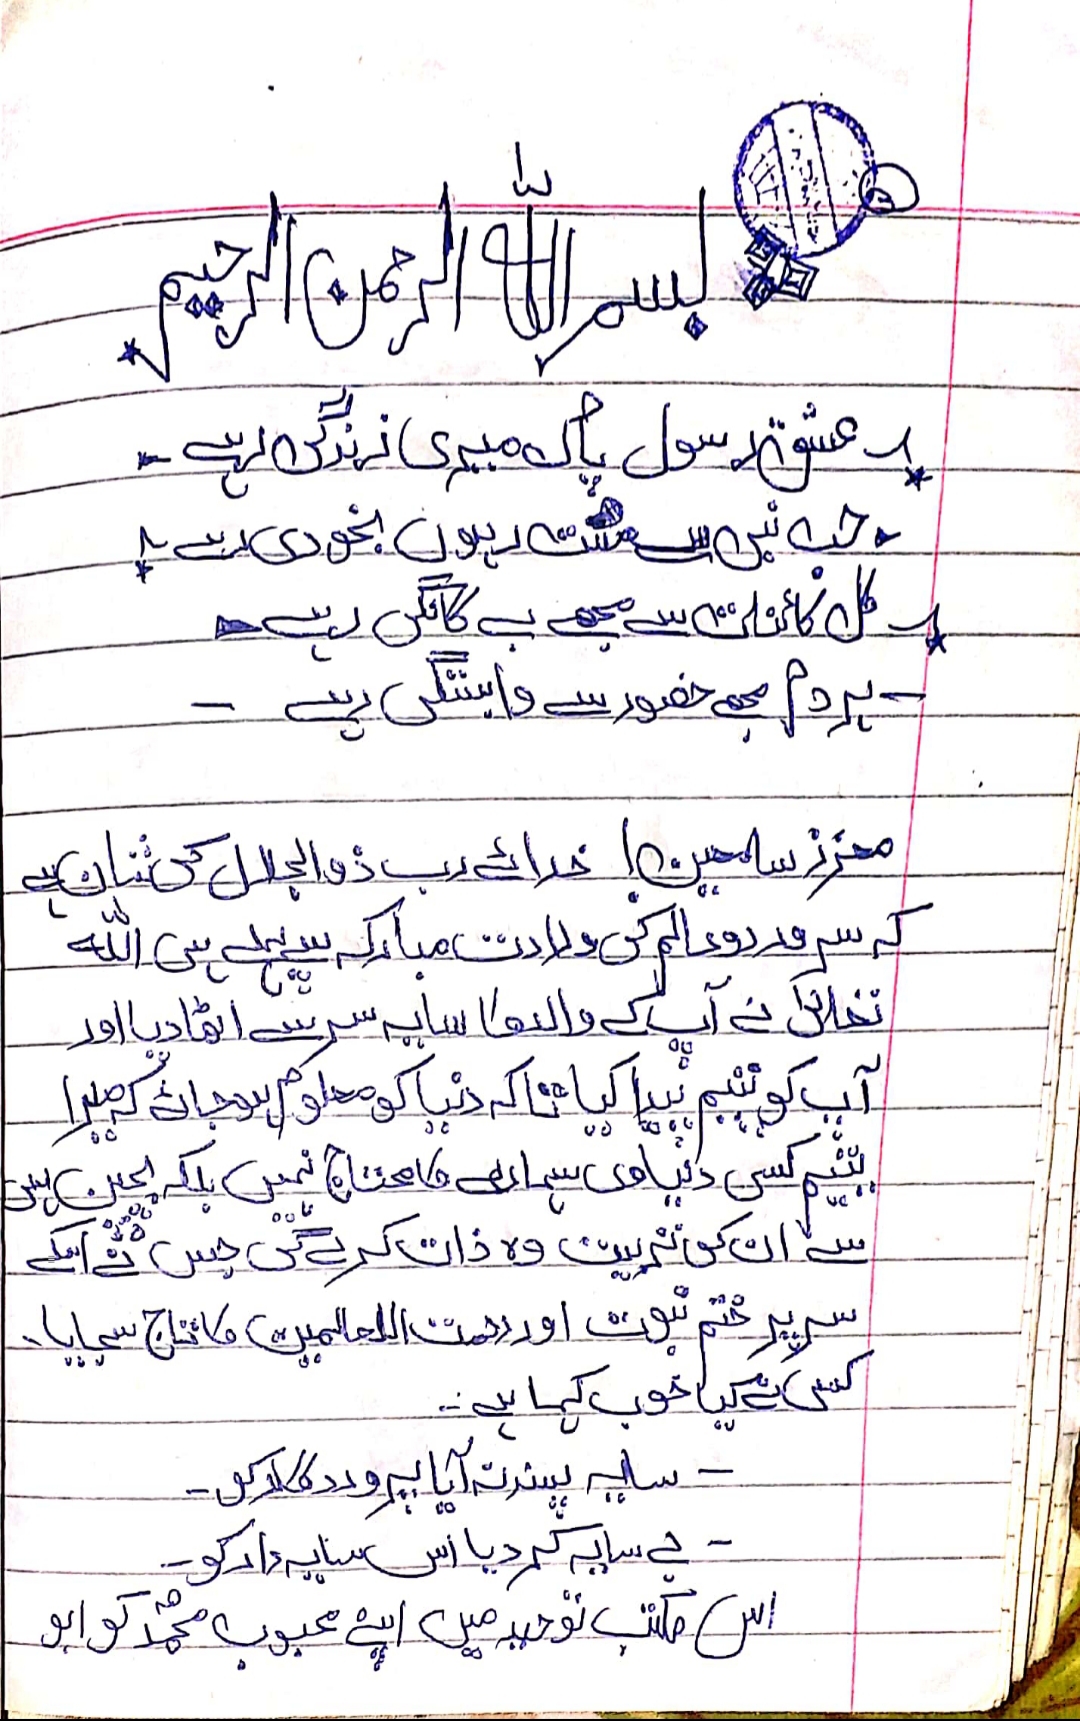 بسم اللہ الرحمن الرحیم
عشق رسول پاک میری زندگی رہے
حب نبی سے مست رہوں بخودی رہے
کل کائنات سے مجھے بے گانگی رہے
ہر دم مجھے حضور سے وابستگی رہے
معزز سامعین! خدائے رب ذوالجلال کی شان ہے
کہ سرور دو عالم کی ولادت مبارکہ سے پہلے ہی اللہ
تعالیٰ نے آپ کے والد کا سایہ سر سے اٹھا دیا اور
آپ کو یتیم پیدا کیا تاکہ دنیا کو معلوم ہو جائے کہ میرا
یتیم کسی دنیاوی سہارے کا محتاج نہیں بلکہ بچپن ہی
سے ان کی تربیت وہ ذات کرے گی جس نے آپکے
سر پر ختم نبوت اور رحمت اللعالمین کا تاج سجایا۔
کسی نے کیا خوب کہا ہے :-
- سایہ پسند نہ آیا پروردگار کو -
- بے سایہ کر دیا اس سایہ دار کو -
اس مکتب توحید میں اپنے محبوب محمد کو ابو